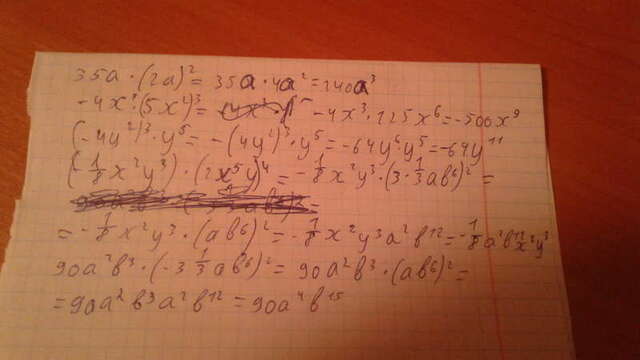 35a·(2a)²=35a·4a²=140a³
-4x³·(5x²)³= -4x³·125x⁶=-500x⁹
(-4y²)³·y⁵=-(4y²)³·y⁵=-64y⁶y⁵=-64y¹¹
(-1/8x²y³)·(2x⁵y)⁴=-1/8x²y³·(3·1/3ab⁶)²=
=-1/8x²y³·(ab⁶)²=-1/8x²y³a²b¹²=-1/8a²b¹²x²y³
90a²b³·(-3 1/3ab⁶)²=90a²b³·(ab⁶)²=
=90a²b³a²b¹²=90a⁴b¹⁵